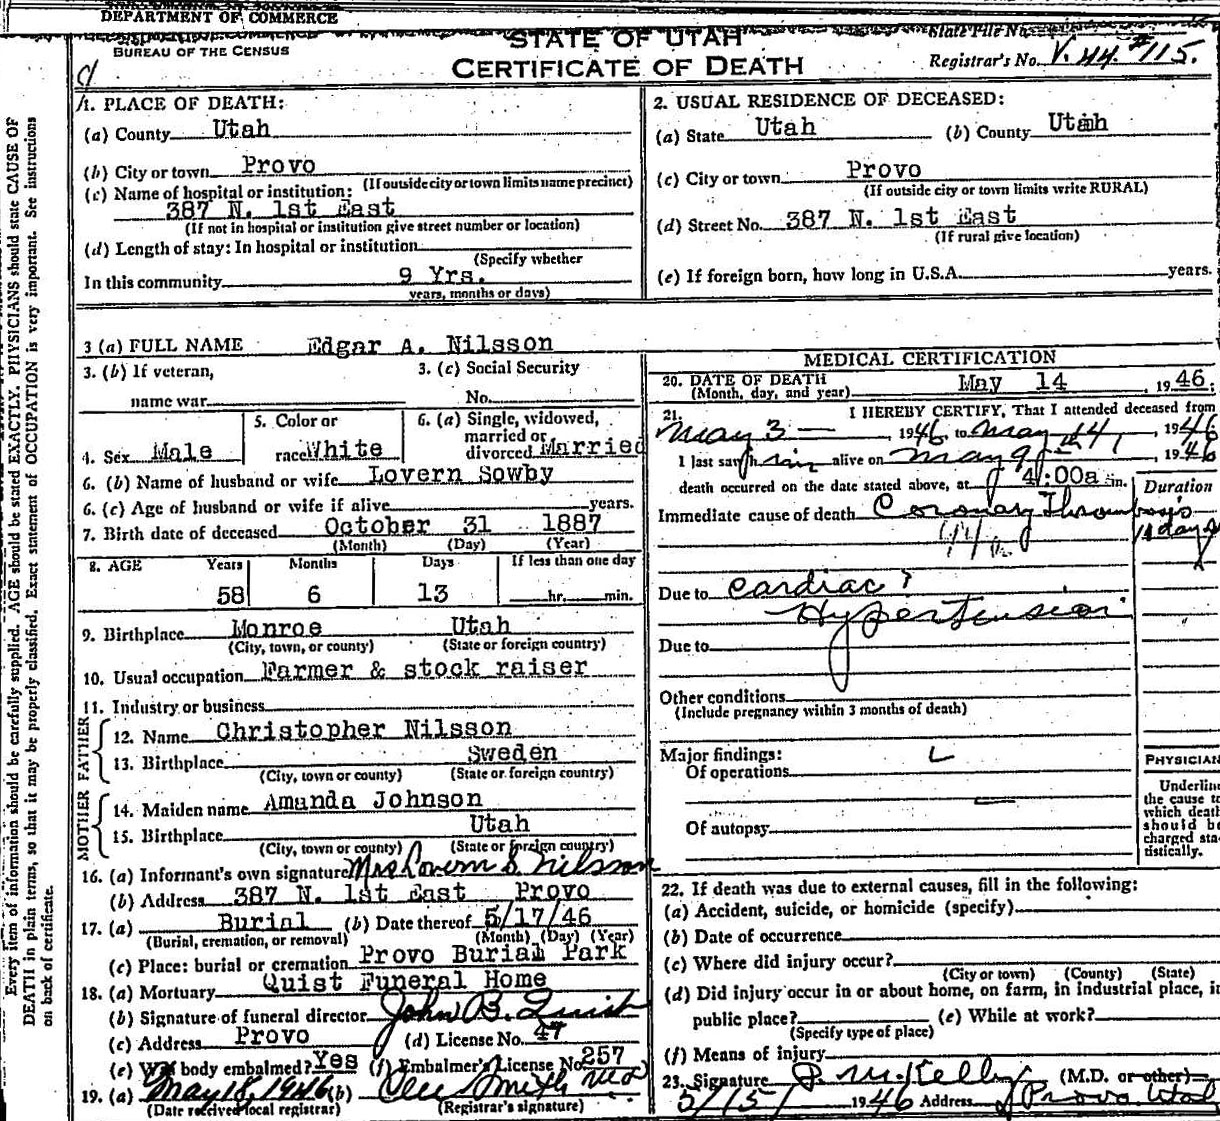 DEPARTMENT OF COMMERCE
BUREAU OF THE CENSUS
STATE OF UTAH
CERTIFICATE OF DEATH
State File No.
Registrar's No. V. 44 #115.
1. PLACE OF DEATH:
(a) County Utah
(b) City or town Provo
(If outside city or town limits name precinct)
(c) Name of hospital or institution:
387 N. 1st East
(If not in hospital or institution give street number or location)
(d) Length of stay: In hospital or institution
(Specify whether
In this community 9 Yrs.
years, months or days)
2. USUAL RESIDENCE OF DECEASED:
(a) State Utah (b) County Utah
(c) City or town Provo
(If outside city or town limits write RURAL)
(d) Street No. 387 N. 1st East
(If rural give location)
(e) If foreign born, how long in U.S.A. years.
3 (a) FULL NAME Edgar A. Nilsson
3. (b) If veteran, 3. (c) Social Security
name war No.
4. Sex Male
5. Color or
race White
6. (a) Single, widowed,
married or
divorced Married
6. (b) Name of husband or wife Lovern Sowby
6. (c) Age of husband or wife if alive years.
7. Birth date of deceased October 31 1887
(Month) (Day) (Year)
8. AGE Years Months Days If less than one day
58 6 13 hr. min.
9. Birthplace Monroe Utah
(City, town, or county) (State or foreign country)
10. Usual occupation Farmer & stock raiser
11. Industry or business
FATHER
12. Name Christopher Nilsson
13. Birthplace Sweden
(City, town or county) (State or foreign country)
MOTHER
14. Maiden name Amanda Johnson
15. Birthplace Utah
(City, town or county) (State or foreign country)
16. (a) Informant's own signature Mrs Lovern S. Nilsson
(b) Address 387 N. 1st East Provo
17. (a) Burial (b) Date thereof 5/17/46
(Burial, cremation, or removal) (Month) (Day) (Year)
(c) Place: burial or cremation Provo Burial Park
18. (a) Mortuary Quist Funeral Home
(b) Signature of funeral director John B. Quist
(c) Address Provo (d) License No. 47
(e) Was body embalmed? Yes (f) Embalmer's License No. 257
19. (a) May 18, 1946 (b) Smith M D
(Date received local registrar) (Registrar's signature)
MEDICAL CERTIFICATION
20. DATE OF DEATH May 14 1946;
(Month, day, and year)
21. I HEREBY CERTIFY, That I attended deceased from
May 3 — , 1946, to May 14th, 1946
I last saw him alive on May 9th, 1946
death occurred on the date stated above, at 4:00a m.
Duration
Immediate cause of death Coronary Thrombosis
11 days
Due to Cardiac?
Hypertension
Due to
Other conditions
(Include pregnancy within 3 months of death)
Major findings:
Of operations
Of autopsy
PHYSICIAN
Underline
the cause to
which death
should be
charged sta-
tistically.
22. If death was due to external causes, fill in the following:
(a) Accident, suicide, or homicide (specify)
(b) Date of occurrence
(c) Where did injury occur?
(City or town) (County) (State)
(d) Did injury occur in or about home, on farm, in industrial place, in
public place? (e) While at work?
(Specify type of place)
(f) Means of injury
23. Signature J. M. Kelly (M.D. or other)
5/15/ 1946 Address Provo Utah
Every item of information should be carefully supplied. AGE should be stated EXACTLY. PHYSICIANS should state CAUSE OF
DEATH in plain terms, so that it may be properly classified. Exact statement of OCCUPATION is very important. See instructions
on back of certificate.